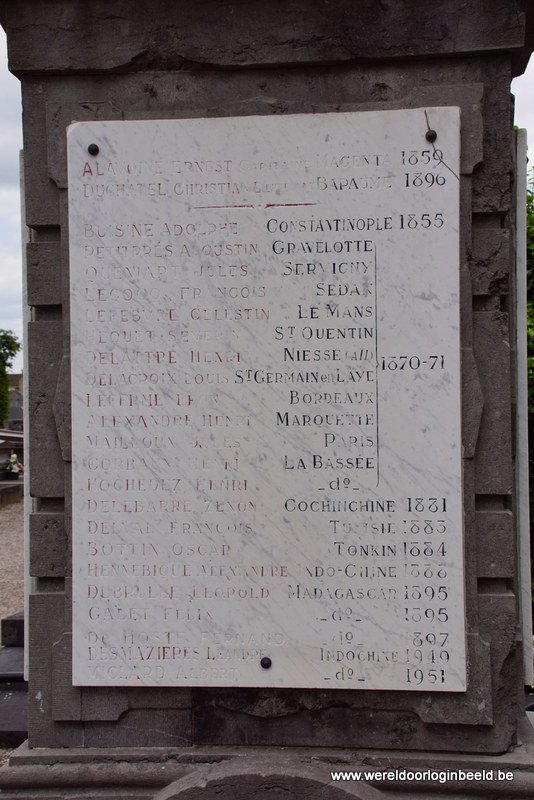 ERNEST CAPITAINE MAGENTA 1859
DUCHATEL CHRISTIAN BAPAUME 1896
BUISINE ADOLPHE CONSTANTINOPLE 1855
AUGUSTIN GRAVELOTTE
JULES SERVIGNY
LECOCQ FRANÇOIS SEDAN
LEFEBVRE CELESTIN LE MANS
ST QUENTIN
DELATTRE HENRI NIESSE (All)
DELACROIX LOUIS ST GERMAIN en LAYE 1870-71
BORDEAUX
ALEXANDRE HENRI MARQUETTE
MAILLOUX JULES PARIS
HENRI LA BASSÉE
HOCHEDEZ HENRI _dº_
DELEBARRE ZENON COCHINCHINE 1881
DELVAL FRANÇOIS TUNISIE 1883
BOTTIN OSCAR TONKIN 1884
HENNEBIQUE ALEXANDRE INDO-CHINE 1888
LEOPOLD MADAGASCAR 1895
GALET FELIX _dº_ 1895
DE HOSTE FERNAND _dº_ 1897
DESMAZIÈRES LEANDRE INDOCHINE 1949
ALBERT _dº_ 1951
www.wereldoorloginbeeld.be